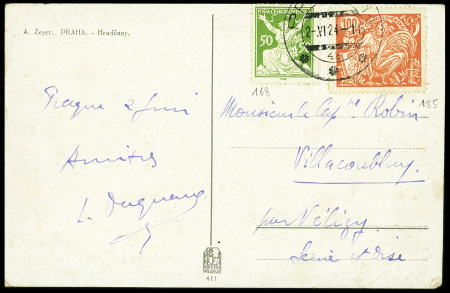 A. Zeyer, PRAHA. – Hradčany.
50
100
2-VI 24-11
168
185
Prague 2 Juin
Amitiés
L.
Monsieur le Capne Robin
Villacoublay
par Vélizy
Seine et Oise
411